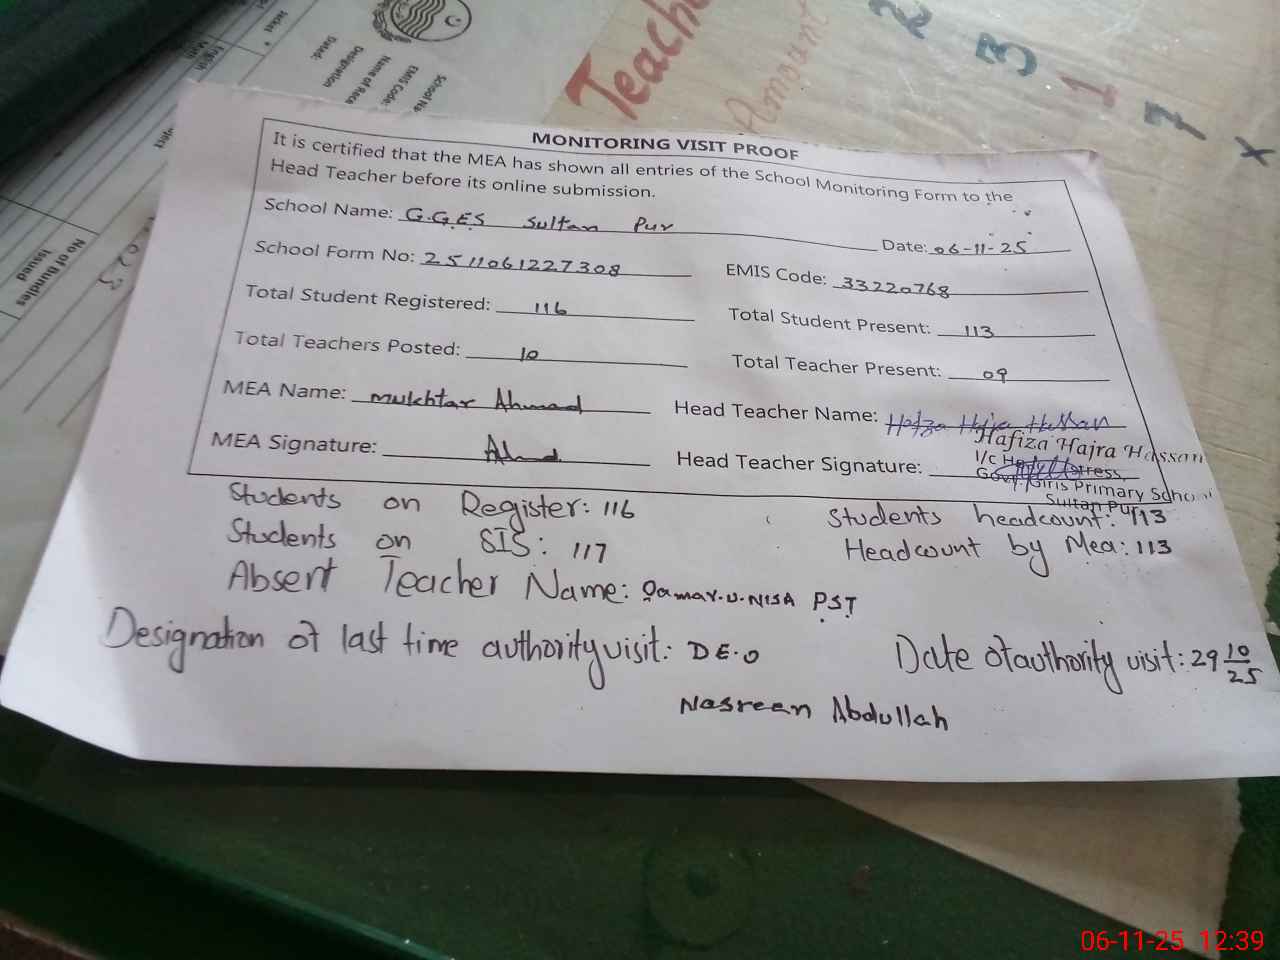 Teache
Amount
2
3
1
7
x
School Na
EMIS Code:
Name of Rece
Designation
Dated:
No of Bundles
Issued
MONITORING VISIT PROOF
It is certified that the MEA has shown all entries of the School Monitoring Form to the
Head Teacher before its online submission.
School Name: G.G.E.S Sultan Pur Date: 06-11-25
School Form No: 2511061227308 EMIS Code: 33220768
Total Student Registered: 116 Total Student Present: 113
Total Teachers Posted: 10 Total Teacher Present: 09
MEA Name: Mukhtar Ahmad Head Teacher Name: Hafza Hajra Hassan
MEA Signature: Ahmad Head Teacher Signature:
Hafiza Hajra Hassan
I/C Head Mistress,
Govt. Girls Primary School
Sultan Pur
Students on Register: 116 Students headcount: 113
Students on SIS: 117 Headcount by Mea: 113
Absent Teacher Name: Qamar-U-NISA PST
Designation of last time authority visit: DE.O Date of authority visit: 29 10/25
Nasreen Abdullah
06-11-25 12:39